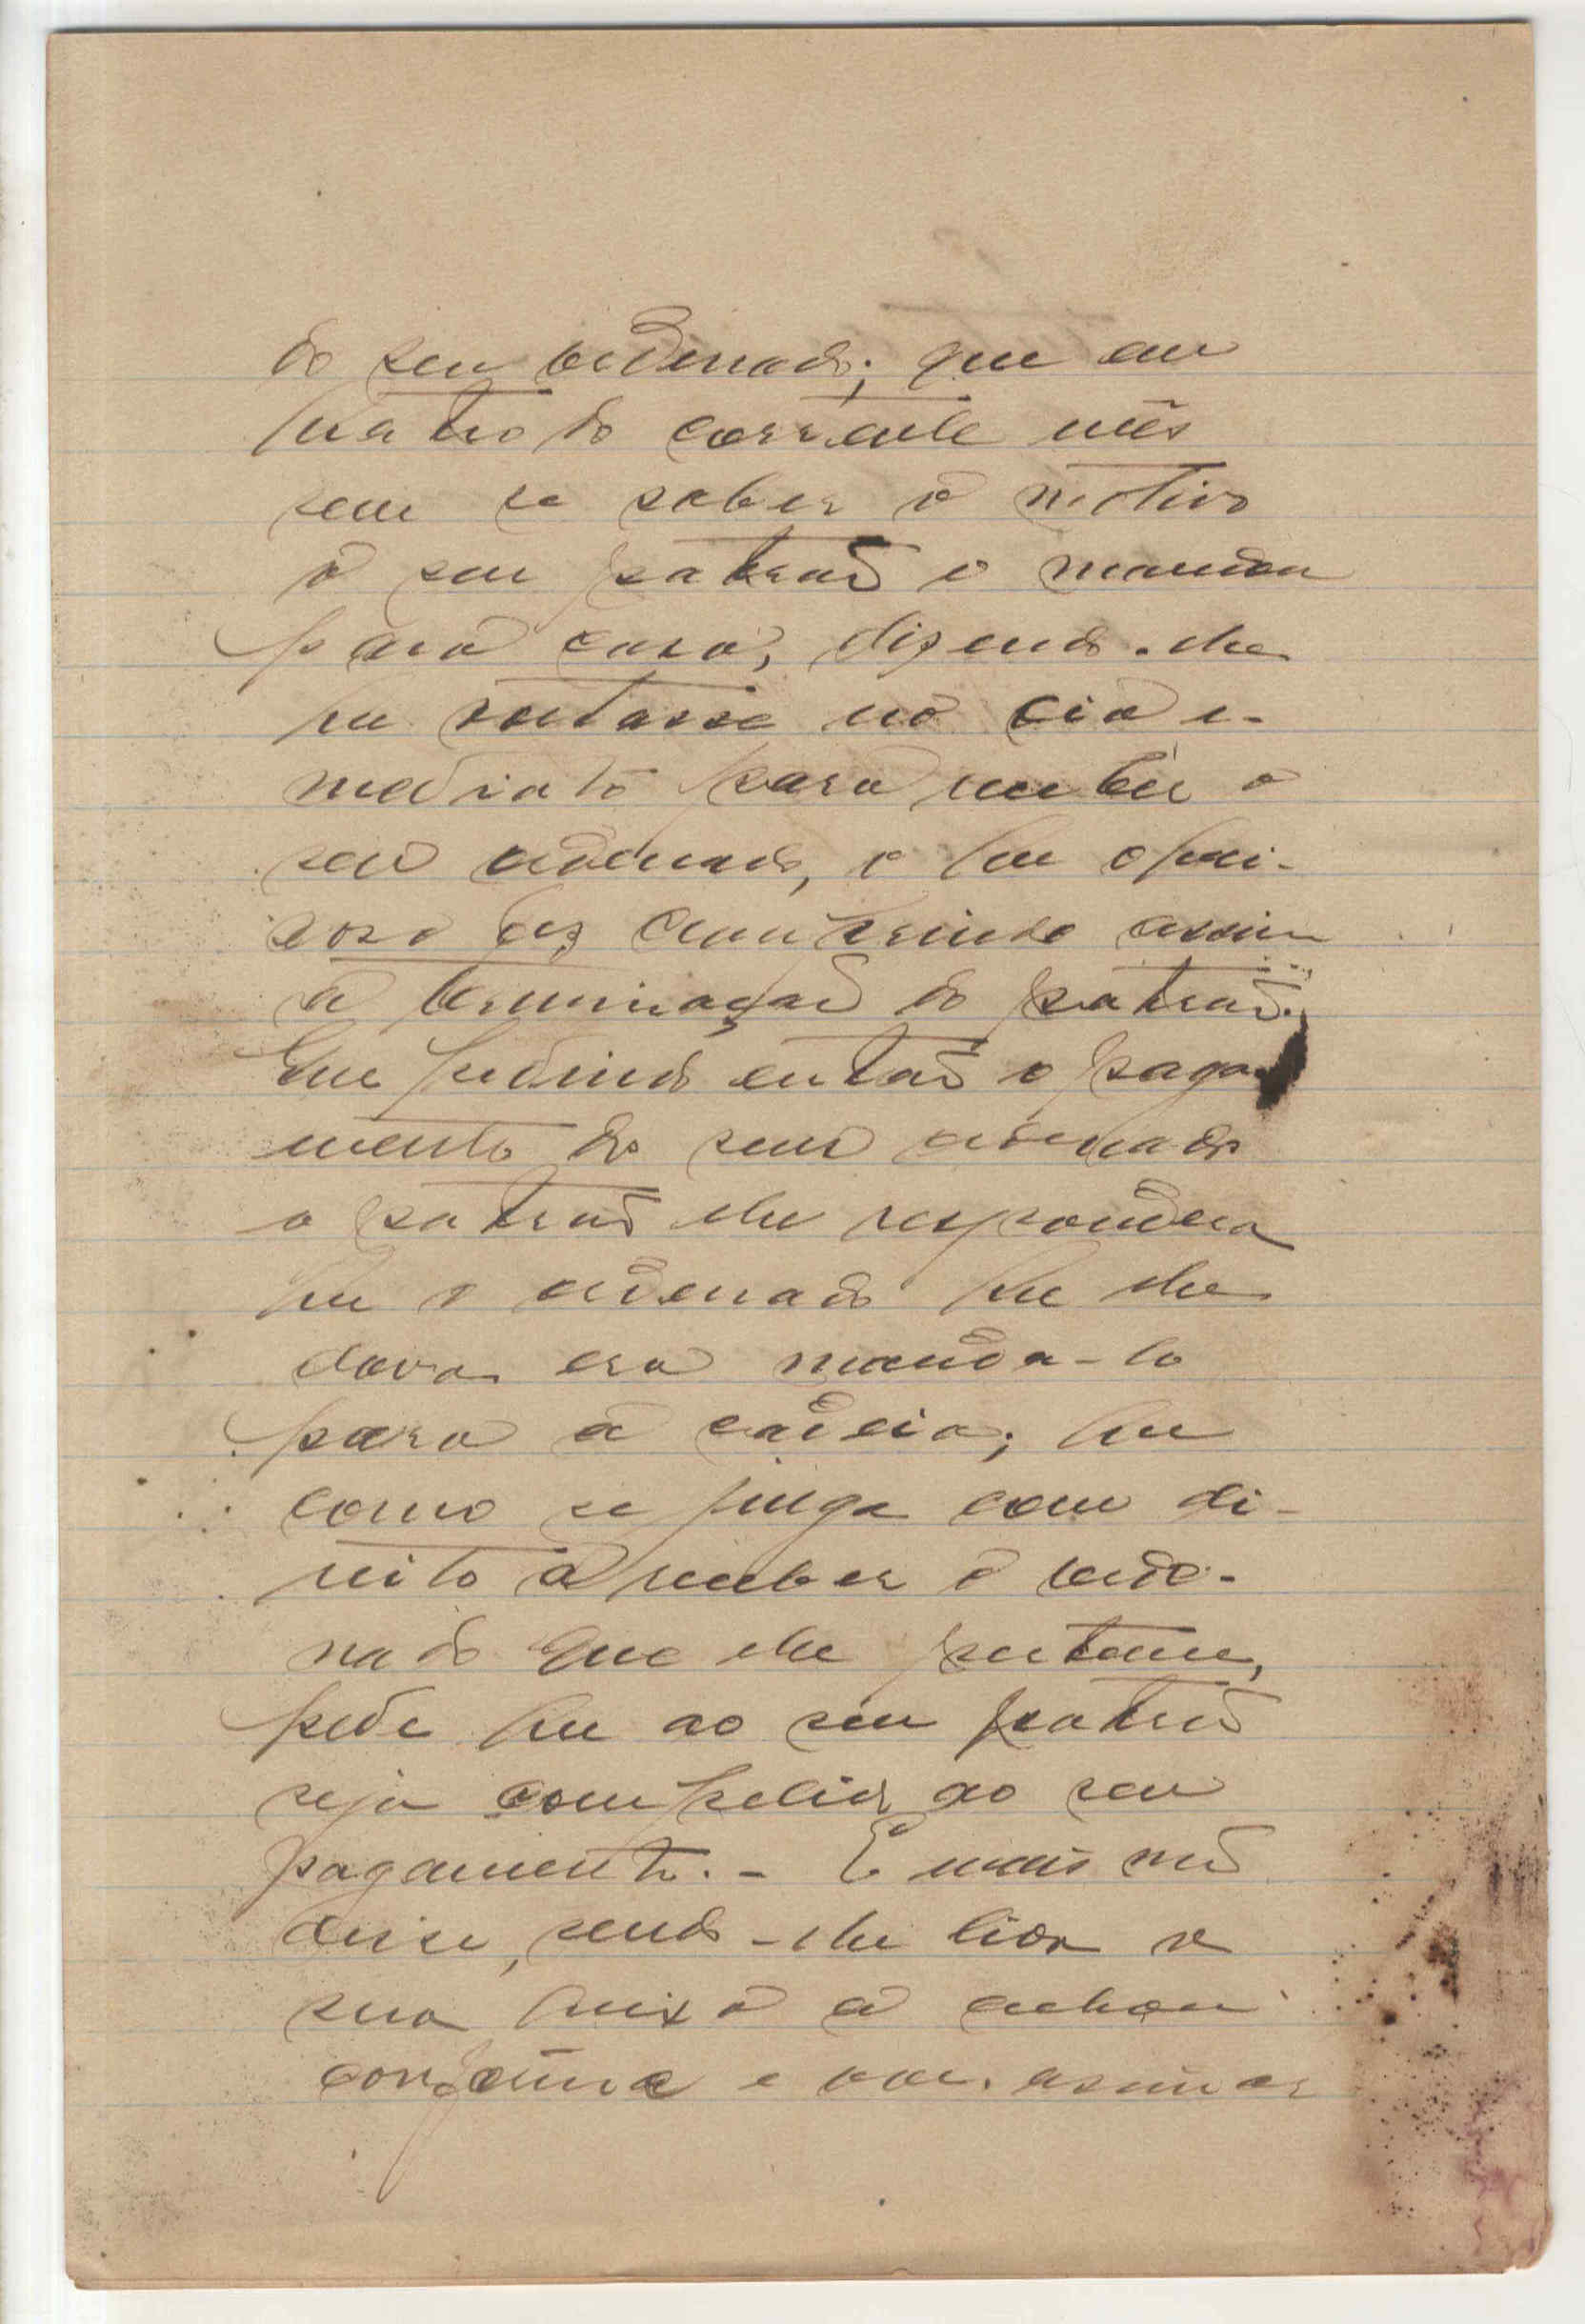 do seu ordenado; que em
quatro do corrente mês
sem se saber o motivo
o seu patrão o mandou
para casa, dizendo-lhe
que voltasse no dia i-
mediato para receber o
seu ordenado, o que o quei-
xoso fez cumprindo assim
a terminação do patrão.
Que pedindo então o paga-
mento do seu ordenado
o patrão lhe respondera
que o ordenado que lhe
dava era manda-lo
para a cadeia; que
como se julga com di-
reito a receber o orde-
nado que lhe pertence,
pede que ao seu patrão
seja compelido ao seu
pagamento. - E mais não
disse, sendo-lhe lida a
sua queixa a achou
conforme e vai assinar